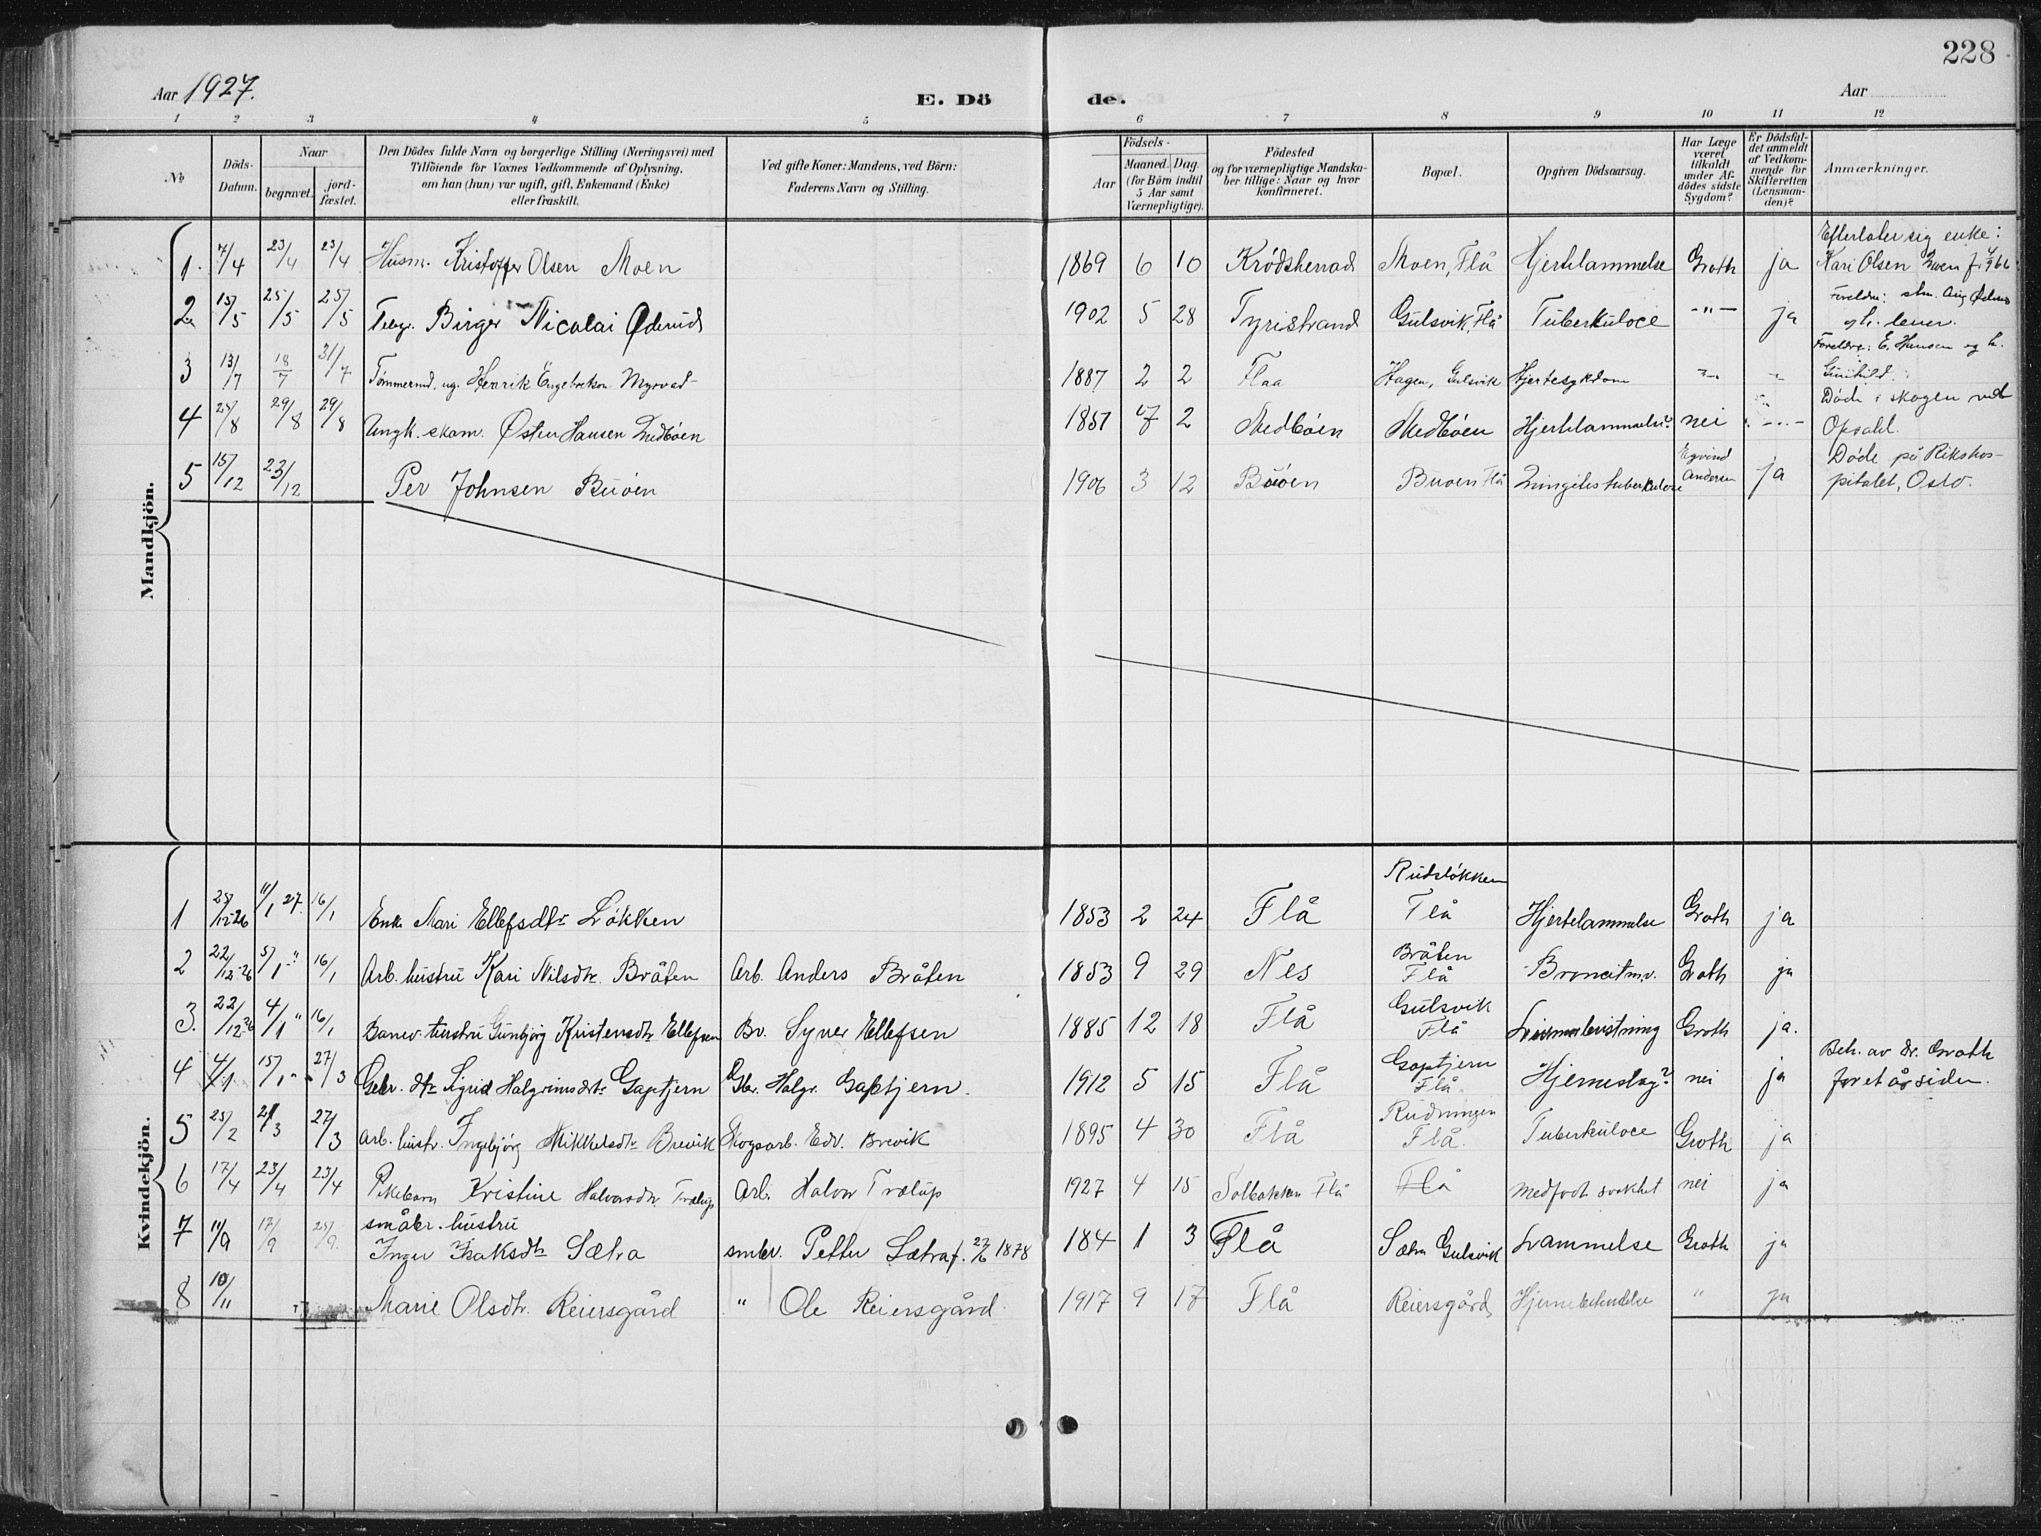 228
Aar 1927.
E. Dö
de.
Aar
1 2 3 4 5 6 7 8 9 10 11 12
№
Döds-Datum.
Naar
begravet.
jord-fæstet.
Den Dödes fulde Navn og borgerlige Stilling (Næringsvei) med
Tilföiende for Voxnes Vedkommende af Oplysning,
om han (hun) var ugift, gift, Enkemand (Enke)
eller fraskilt.
Ved gifte Koner: Mandens, ved Börn:
Faderens Navn og Stilling.
Födsels-
Aar
Maaned. Dag.
(for Börn indtil
5 Aar samt
Værnepligtige).
Födested
og for værnepligtige Mandska-
ber tillige: Naar og hvor
konfirmeret.
Bopæl.
Opgiven Dödsaarsag.
Har Læge
været
tilkaldt
under Af-
dödes sidste
Sygdom?
Er Dödsfal-
det anmeldt
af Vedkom-
mende for
Skifteretten
(Lensman-
den)?
Anmærkninger.
Mandkjön.
1. 7/4 23/4 23/4 Husm. Kristoffer Olsen Moen 1869 6 10 Krødsherad Moen, Flå Hjertelammelse Groth ja Efterlater sig enke:
Kari Olsen Moen
2 15/5 25/5 25/5 Birger Nicolai Øderud 1902 5 28 Tyristrand Gulsvik, Flå Tuberkuloce -"- ja Foreldre:
3 13/7 18/7 31/7 Tømmermd. ug. Henrik Engebretsen Myrvad 1887 2 2 Flaa Hagen, Gulsvik Hjertesykdom Foreldre: E. Hansen og h.
Gunhild.
4 25/8 29/8 29/8 Ungk. skom. Østen Hansen Medbøen 1857 7 2 Medbøen Medbøen Hjertelammelse? nei Døde i skogen ved
Opsahl.
5 15/12 23/12 Per Johnsen Buøen 1906 3 12 Buøen Buøen Flå Lungetuberkulose Eyvind
Andersen ja Døde på Rikshos-
pitalet, Oslo.
Kvindekjön.
1 28/12-26 11/1 27. 16/1 Enke Mari Ellefsdtr Løkken 1853 2 24 Flå Rudsløkken
Flå Hjertelammelse Groth ja
2 22/12-26 5/1 " 16/1 Arb. hustru Kari Nilsdtr. Bråten Arb. Anders Bråten 1853 9 29 Nes Bråten
Flå Broncit m.v. Groth ja
3. 22/12-26 4/1 " 16/1 Banev. hustru Gunbjørg Kristensdtr Ellefsen Bv. Syver Ellefsen 1885 12 18 Flå Gulsvik
Flå Groth ja.
4 4/1 15/1 27/3 Gbr. dtr Sigrid Halgrimsdtr Gaptjern Gbr. Halgr. Gaptjern. 1912 5 15 Flå Gaptjern
Flå Hjerneslag? nei ja Beh. av Dr. Groth
for et år siden.
5 25/2 2/3 27/3 Arb. hustr. Ingebjørg Mikkelsdtr Brevik Skogsarb. Edv. Brevik 1895 4 30 Flå Rudningen
Flå. Tuberkuloce Groth ja
6 17/4 23/4 23/4 Pikebarn Kristine Halvorsdtr Trælup Arb. Halvor Trælup 1927 4 15 Solbakken Flå Flå Medfødt svakhet nei ja
7 11/9 17/9 25/9. småbr. hustru
Inger Isaksdtr Sætra småbr. Petter Sætra f. 1878 184 1 3 Flå Sætra Gulsvik Lammelse Groth ja
8 10/11 Marie Olsdtr. Reiersgård " Ole Reiersgård 1917 9 17 Flå Reiersgård, Hjernebetendelse " ja